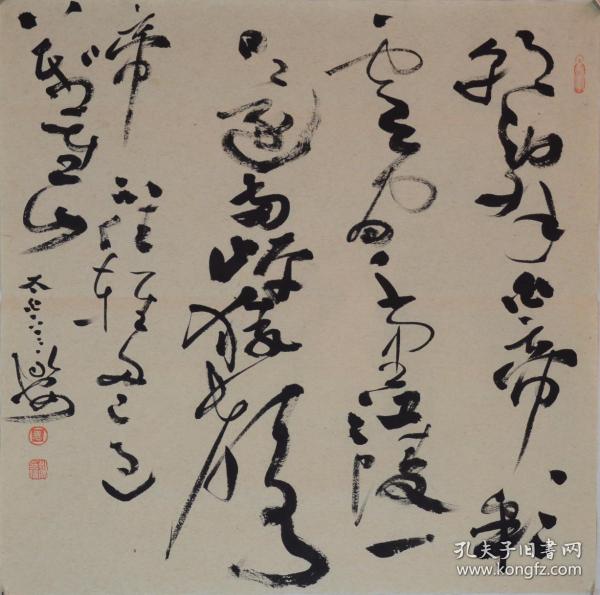 朝辭白帝彩
雲間千里江陵一
日還兩岸猿聲
啼不住輕舟已過
萬重山
孔夫子旧书网
www.kongfz.com